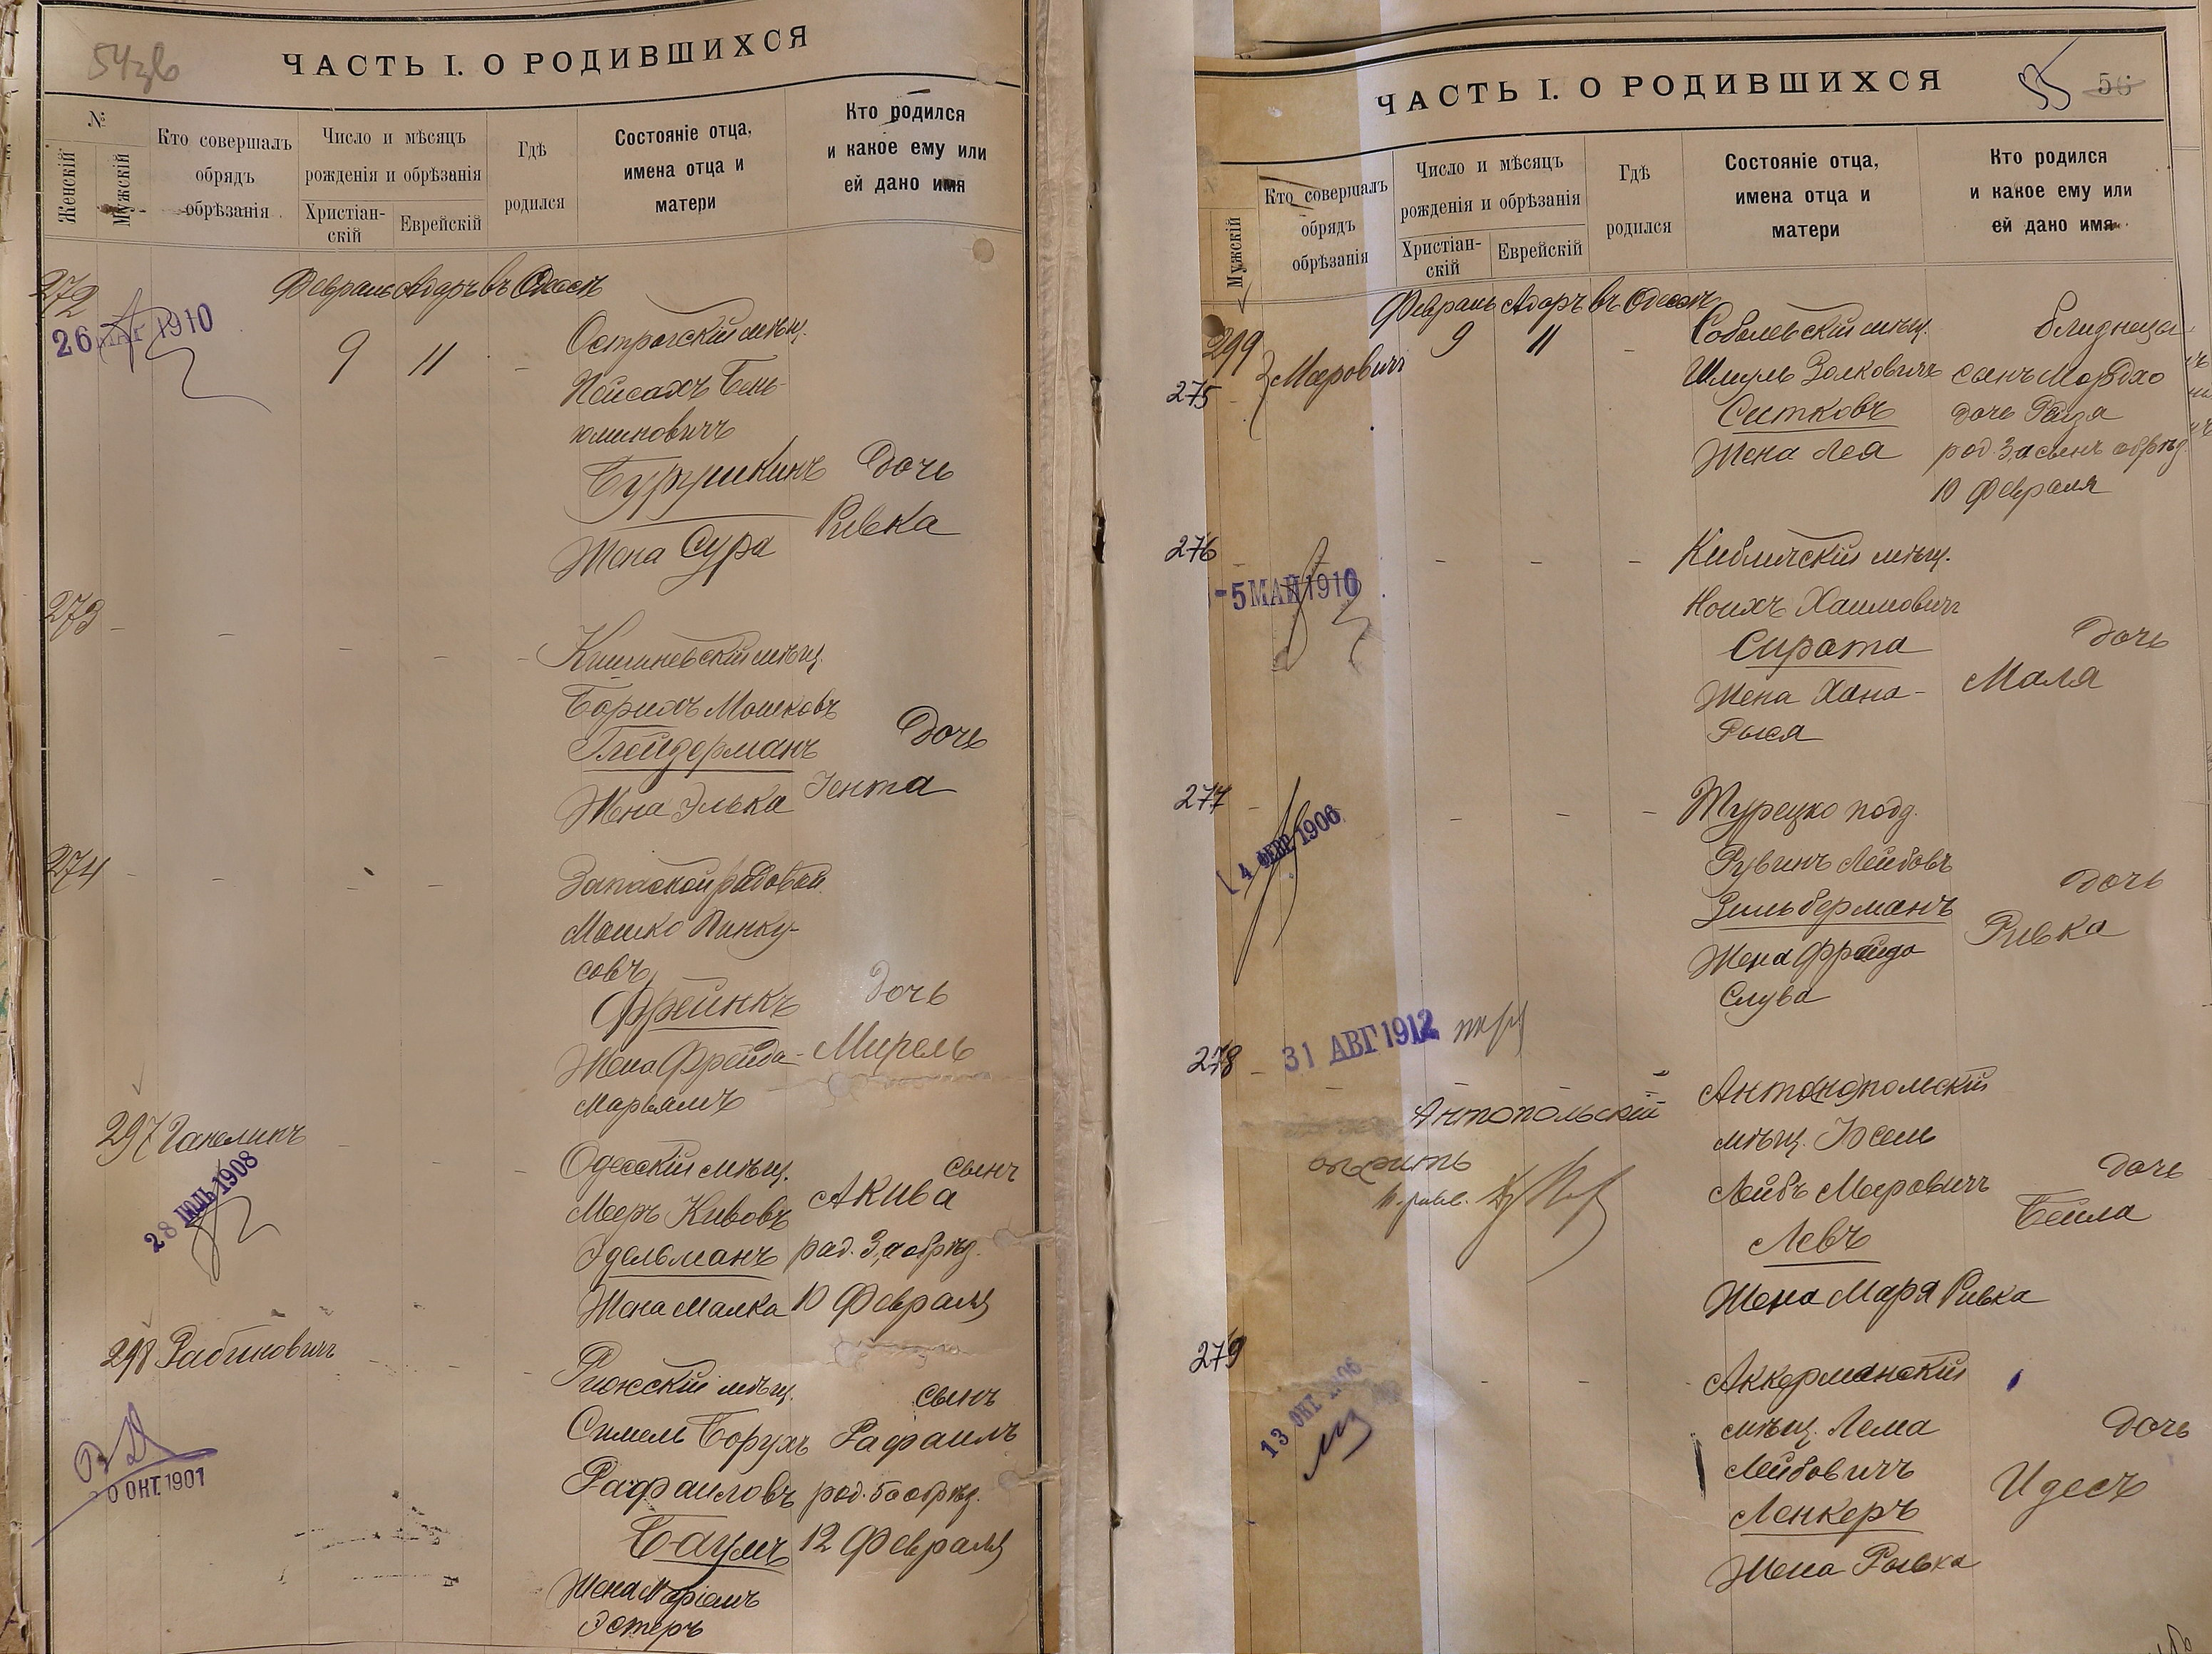 54 зв
ЧАСТЬ I. О РОДИВШИХСЯ
№
Женскій
Мужскій
Кто совершалъ
обрядъ
обрѣзанія
Число и мѣсяцъ
рожденія и обрѣзанія
Христіан-
скій
Еврейскій
Гдѣ
родился
Состояніе отца,
имена отца и
матери
Кто родился
и какое ему или
ей дано имя
Февраль Адаръ въ Одессѣ
272
26 1910
9 11 -
Острогскій мѣщ.
Пейсахъ Бень-
юминовичъ
Бурушкинъ
Жена Сура
Дочь
Ривка
273 - - - - -
Кишиневскій мѣщ.
Борихъ Мошковъ
Глейдерманъ
Жена Элька
Дочь
Іента
274 - - - - -
Запасной рядовой
Мошко Пинку-
совъ
Фрейнкъ
Жена Фрейда-
Марьямъ
Дочь
Мирель
297 Ганелинъ - - -
28 ІЮЛЬ 1908
Одесскій мѣщ.
Меръ Кивовъ
Эдельманъ
Жена Малка
сынъ
Акива
род. 3, а обрѣз.
10 Февраля
298 Рабиновичъ - - -
ОКТ 1901
Ріжскій мѣщ.
Симель Борухъ
Рафаиловъ
Баумъ
Жена Маріамъ
Эстеръ
сынъ
Рафаилъ
род. 5 а обрѣз.
12 Февраля
ЧАСТЬ I. О РОДИВШИХСЯ
55 56
Мужскій
Кто совершалъ
обрядъ
обрѣзанія
Число и мѣсяцъ
рожденія и обрѣзанія
Христіан-
скій
Еврейскій
Гдѣ
родился
Состояніе отца,
имена отца и
матери
Кто родился
и какое ему или
ей дано имя
Февраль Адаръ въ Одессѣ
299
275
Меровичъ
9 11 -
Соболевскій мѣщ.
Шмуль Волковичъ
Ситковъ
Жена Лея
близнеца
сынъ Мордхо
дочь Раиза
род. 3, а сынъ обрѣз.
10 Февраля
276 - - - -
-5 МАЙ 1910
Кибличскій мѣщ.
Ноихъ Хаимовичъ
Сирота
Жена Хана-
Рыся
Дочь
Маля
277 - - - -
4 ФЕВР 1906
Турецко подд.
Рувинъ Лейбовъ
Зильберманъ
Жена Фрейда
Слува
Дочь
Ривка
278 - 31 АВГ 1912
Антопольскій
Антонопольскій
мѣщ. Іосель
Лейбъ Меровичъ
Левъ
Жена Маря Ривка
дочь
Бейла
279 - - -
13 ОКТ 1906
Аккерманскій
мѣщ. Лема
Лейбовичъ
Ленкеръ
Жена Рывка
дочь
Идесъ